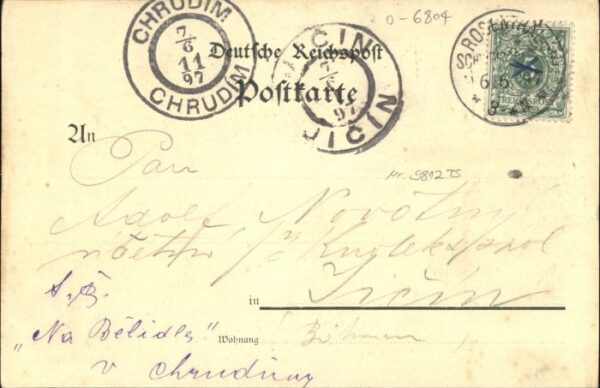 CHRUDIM
7/6
11
97
CHRUDIM
JIČIN
7/6
97
JIČIN
o-6804
ROSENTHAL
6/6
8-
Deutsche Reichspost
Postkarte
An
Pan
Nr. 9812 TS
Adolf Novotný
in Jičín
"Na Bělidle"
Wohnung Böhmen
v Chrudimy